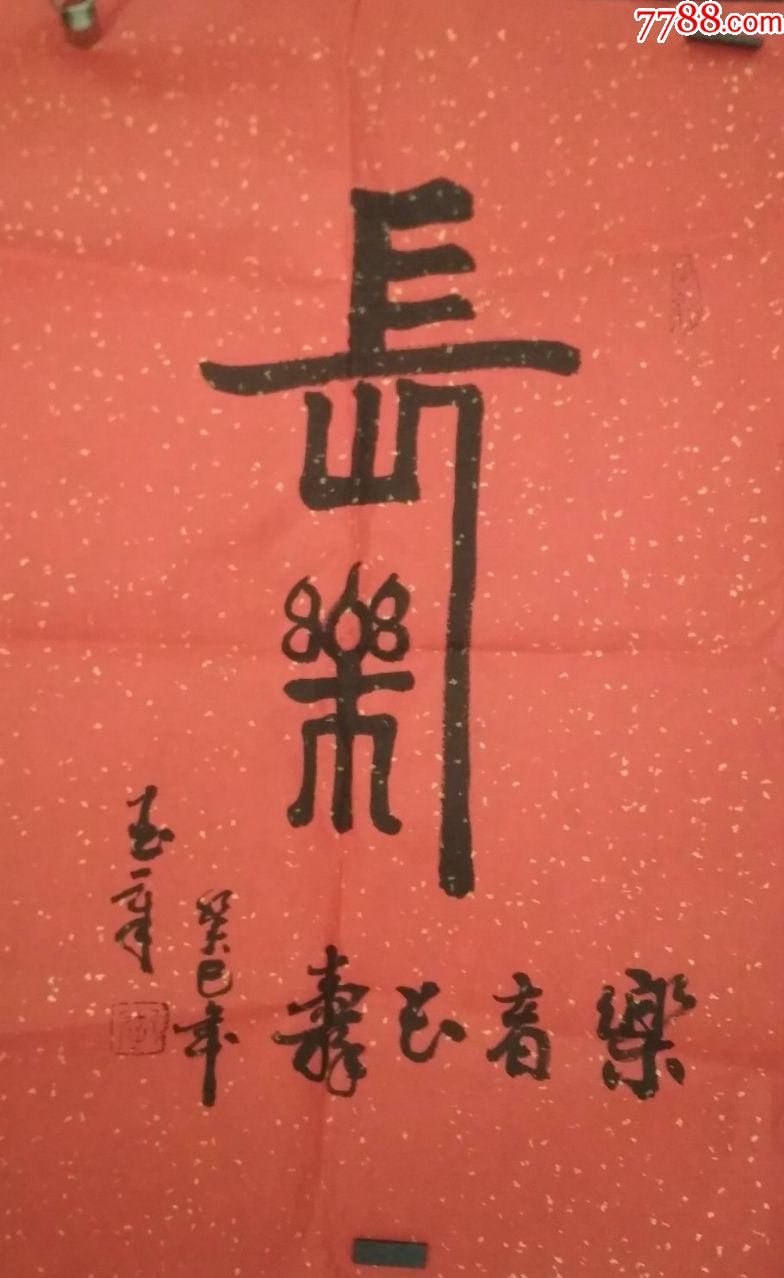 7788.com
長樂
樂者長壽
癸巳年